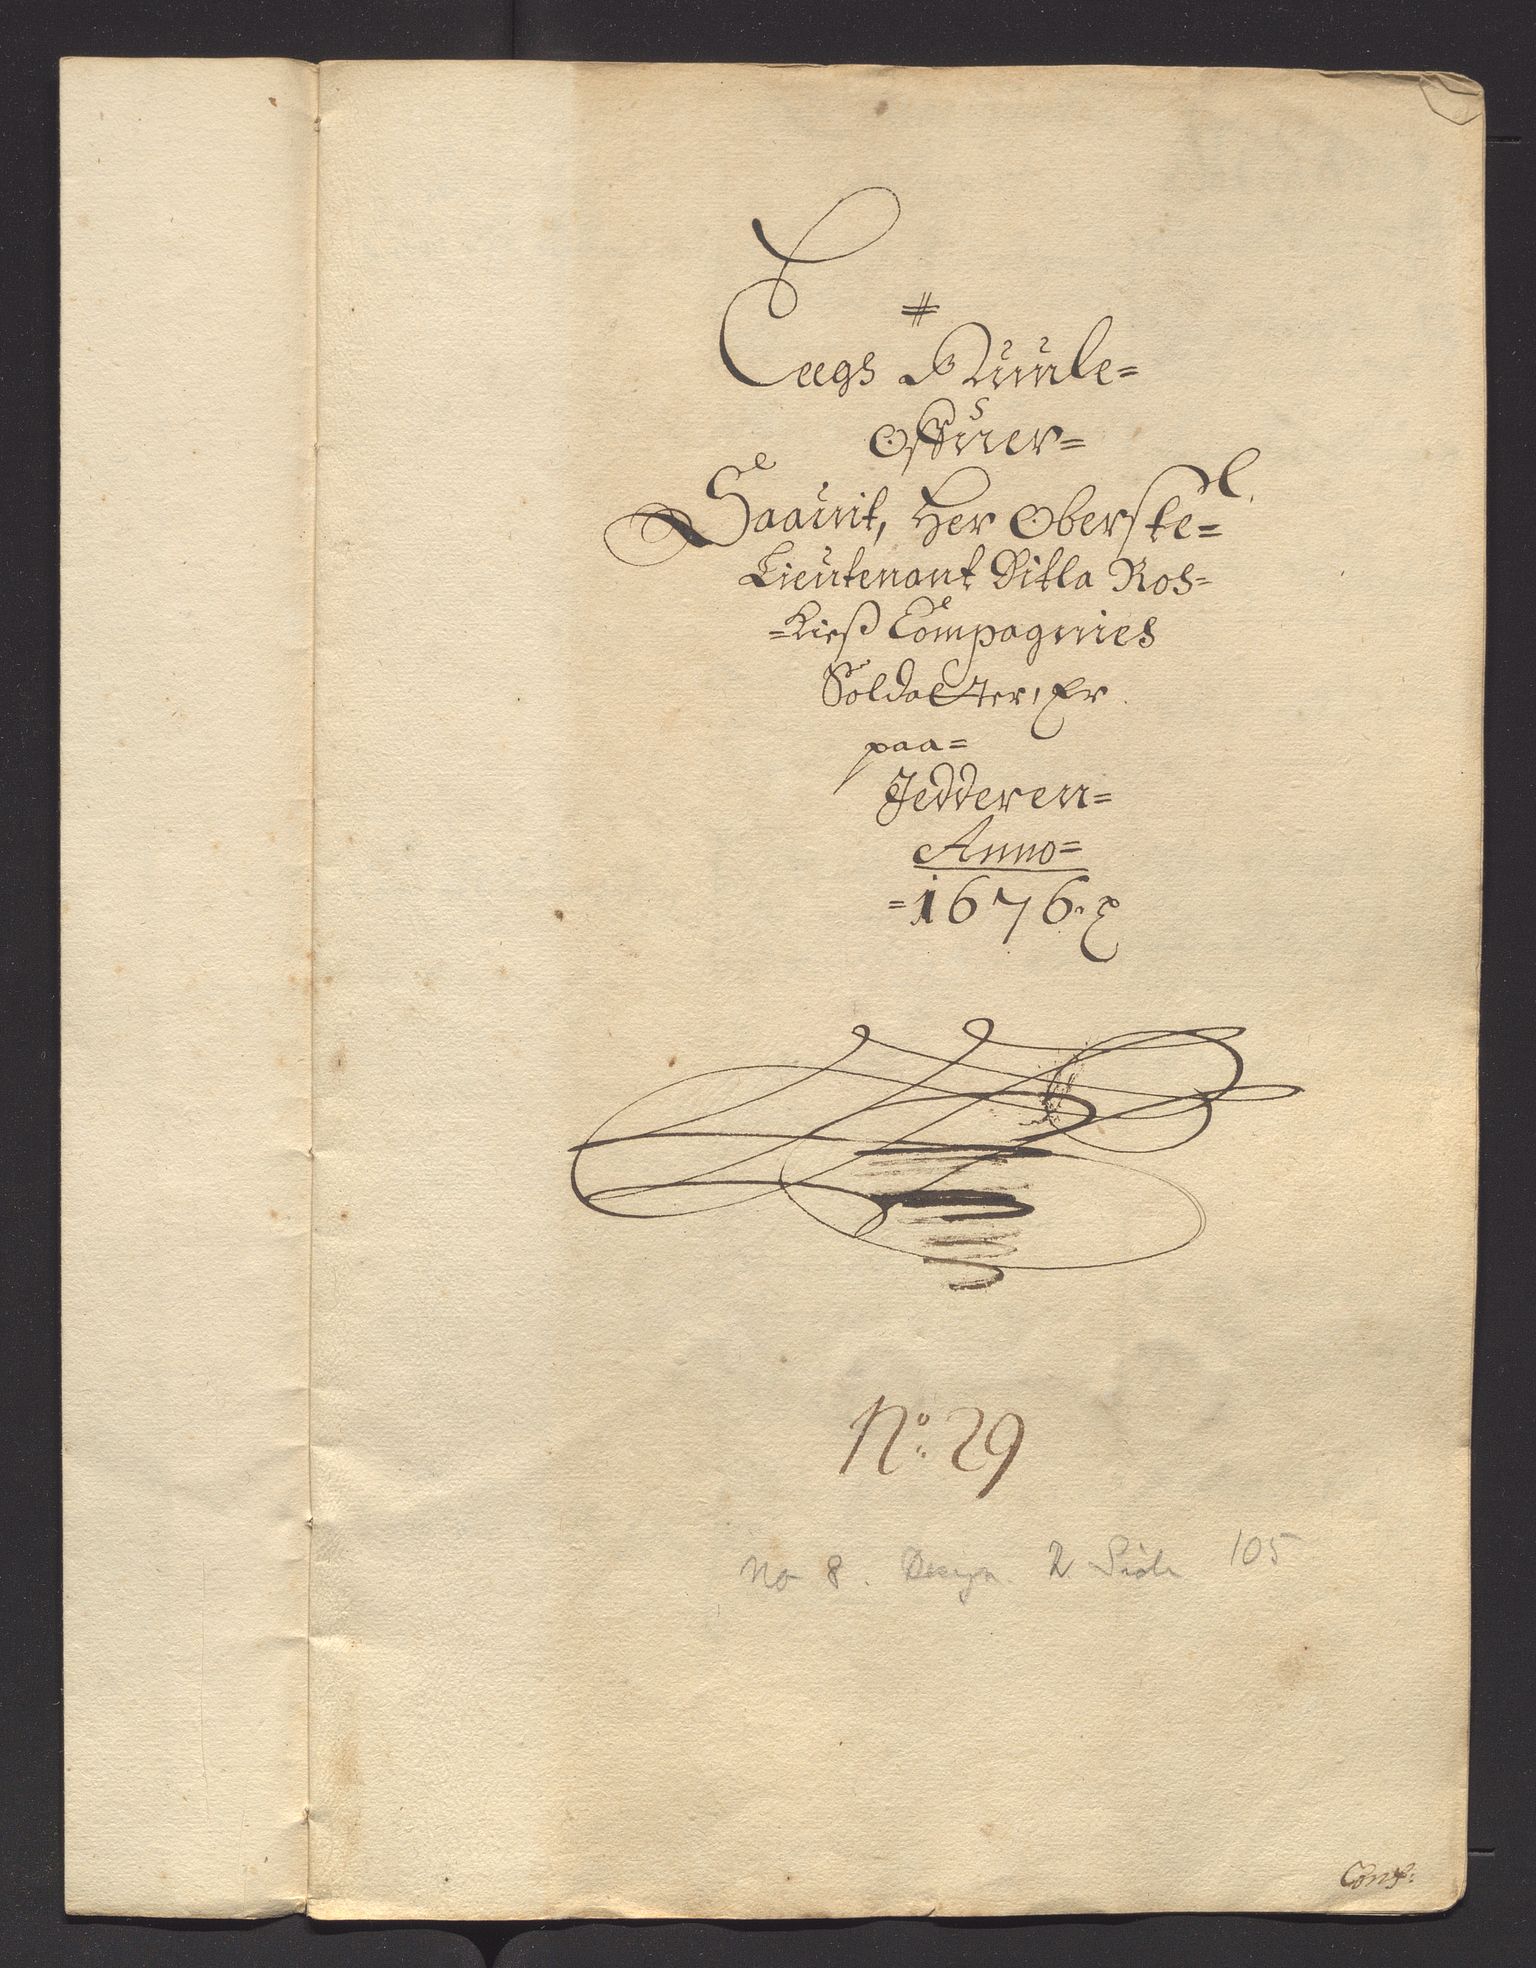 Leegs Ruule=
Offuer=
Saauit, Her Oberste=
Lieutenant Ditla Ros=
=kieß Compagnies
Soldatter, Er
paa=
Jedderen=
Anno=
=1676.
No: 29
No 8. Design. 2 Side 105
Conf: